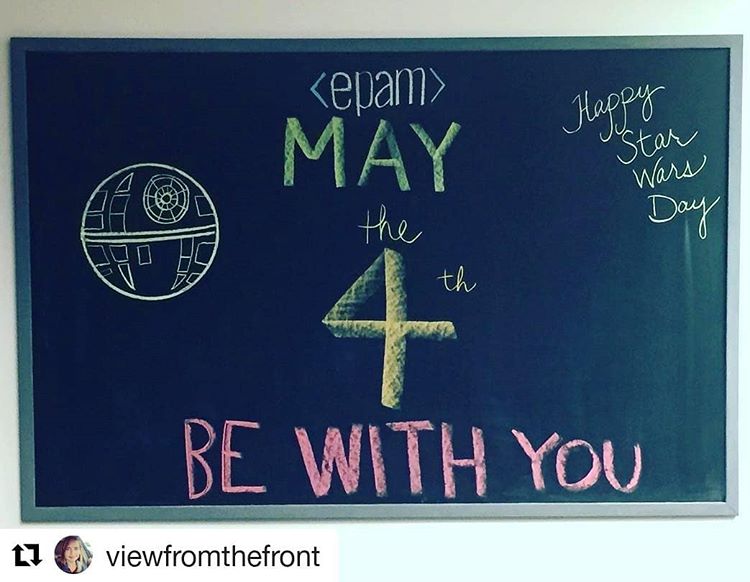 <epam>
MAY
the
4th
BE WITH YOU
Happy
Star
Wars
Day
viewfromthefront